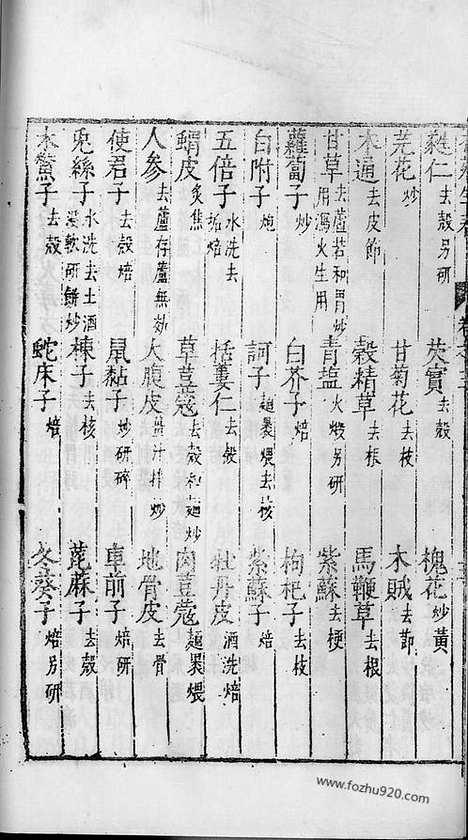 蕤仁去殼另研 芡實去殼 槐花炒黃
芫花炒 甘菊花去枝 木賊去節
木通去皮節 穀精草去根 馬鞭草去根
甘草去蘆若和胃炒用瀉火生用 青鹽火煅另研 紫蘇去梗
蘿蔔子炒 白芥子焙 枸杞子去枝
白附子炮 訶子麵裹煨去核 紫蘇子焙
五倍子水洗去垢焙 栝蔞仁去殼 牡丹皮酒洗焙
蝟皮炙焦 草荳蔻去殼和麺炒 肉荳蔻麺裹煨
人參去蘆存蘆無効 大腹皮薑汁拌炒 地骨皮去骨
使君子去殼焙 鼠黏子炒研碎 車前子焙研
兎絲子水洗去土酒浸軟研餅炒 楝子去核 萆麻子去殼
木鱉子去殼 蛇床子焙 冬葵子焙另研
www.fozhu920.com